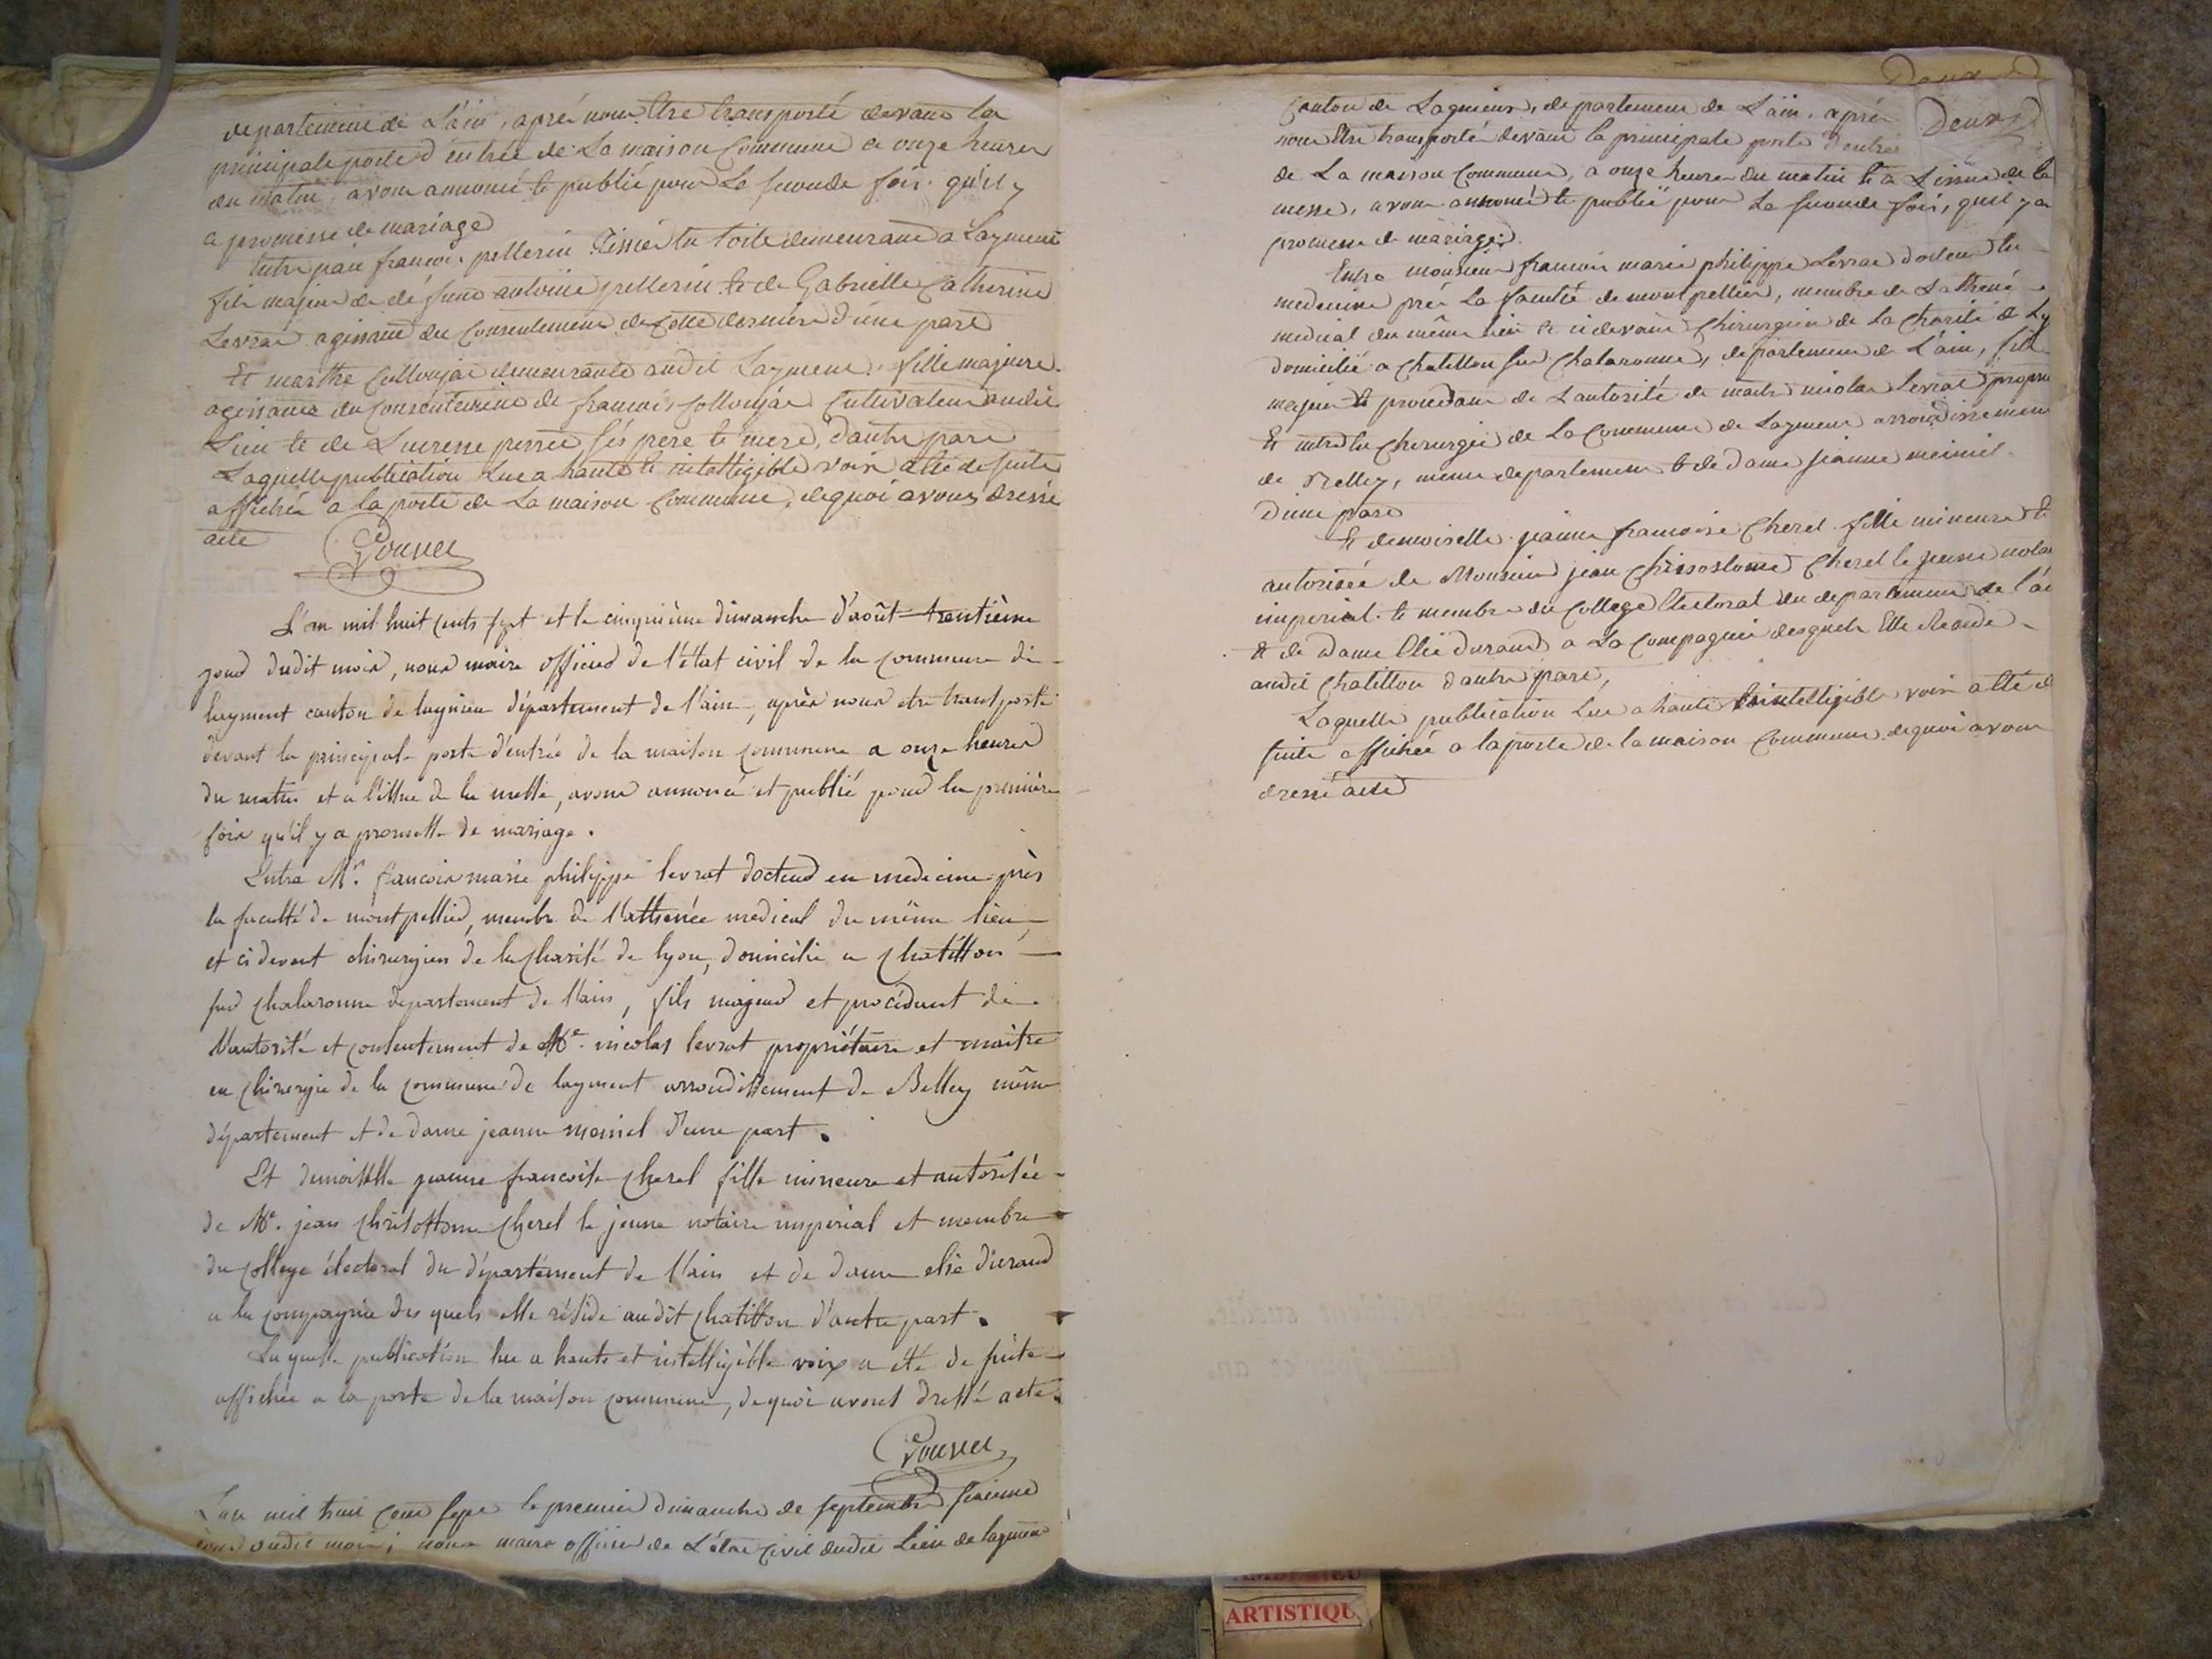 departement de L'ain, aprés nous être transporté devant la
principale porte d'entrée de La maison Commune a onze heures
du matin, avons annoncé et publié pour La seconde fois qu'il y
a promesse de mariage
Entre françois pellerin Tissier en toile demeurant a Laymens
fils majeur de défunt antoine pellerin et de Gabrielle Catherine
Levrat agissant du Consentement de Cette derniére d'une part
Et marthe Collonjat demeurante audit Laymens, fille majeure
agissante du Consentement de françois Collonjat Cultivateur audit
Lieu et de Lucresse perret ses pere et mere, d'autre part
Laquelle publication Lue a haute et intelligible voix a été de suite
affichée a la porte de La maison Commune, de quoi avons dressé
acte
L'an mil huit cents sept et le cinquième dimanche d'août trentième
jour dudit mois, nous maire officier de l'état civil de la commune de
layment canton de lagnieu département de l'ain, après nous etre transporté
devant la principale porte d'entrée de la maison commune a onze heures
du matin et a l'issue de la messe, avons annoncé et publié pour la première
fois qu'il y a promesse de mariage.
Entre Mr. francois marie philippe levrat docteur en medecine près
la faculté de montpellier, membre de l'athenée medical du même lieu
et ci devant chirurgien de la charité de lyon, domicilié a chatillon
sur chalaronne departement de l'ain, fils majeur et procédant de
l'autorité et consentement de Me. nicolas levrat propriétaire et maitre
en chirurgie de la commune de layment arrondissement de Belley même
département et de dame jeanne meiniel d'une part.
Et demoiselle jeanne francoise cherel fille mineure et autorisée
de Me. jean chrisostome cherel le jeune notaire imperial et membre
du college électoral du département de l'ain et de dame elie durand
a la compagnie des quels elle réside audit chatillon d'autre part.
La quelle publication lue a haute et intelligible voix a été de suite
affichée a la porte de la maison commune, de quoi avons dressé acte.
L'an mil huit cent sept le premier dimanche de septembre sixieme
jour dudit mois, nous maire officier de L'état Civil dudit Lieu de laymens
Deux
Canton de Lagnieux, departement de L'ain, aprés
nous être transporté devant la principale porte d'entrée
de La maison Commune, a onze heures du matin et a L'issue de la
messe, avons annoncé et publié pour La seconde fois, qu'il y a
promesse de mariage.
Entre monsieur francois marie philippe Levrat docteur en
medecine prés La faculté de montpellier, membre de L'athené
medical du même Lieu et ci devant Chirurgien de La Charité de Ly
domicilié a Chatillon sur Chalaronne, departement de L'ain, fils
majeur et procedant de L'autorité de maitre nicolas Levrat propri
Et maitre en Chirurgie de La Commune de Laymens arrondissement
de Belley, meme departement et de dame jeanne meiniel
D'une part
Et demoiselle jeanne francoise Cherel fille mineure et
autorisée de Monsieur jean Chrisostome Cherel le jeune nota
imperial et membre du College Electoral du departement de l'ai
et de dame Elie Durand a La Compagnie desquels Elle Reside
audit Chatillon d'autre part,
Laquelle publication Lue a haute et intelligible voix a été de
suite affichée a la porte de la maison Commune de quoi avons
dressé acte
ARTISTIQU